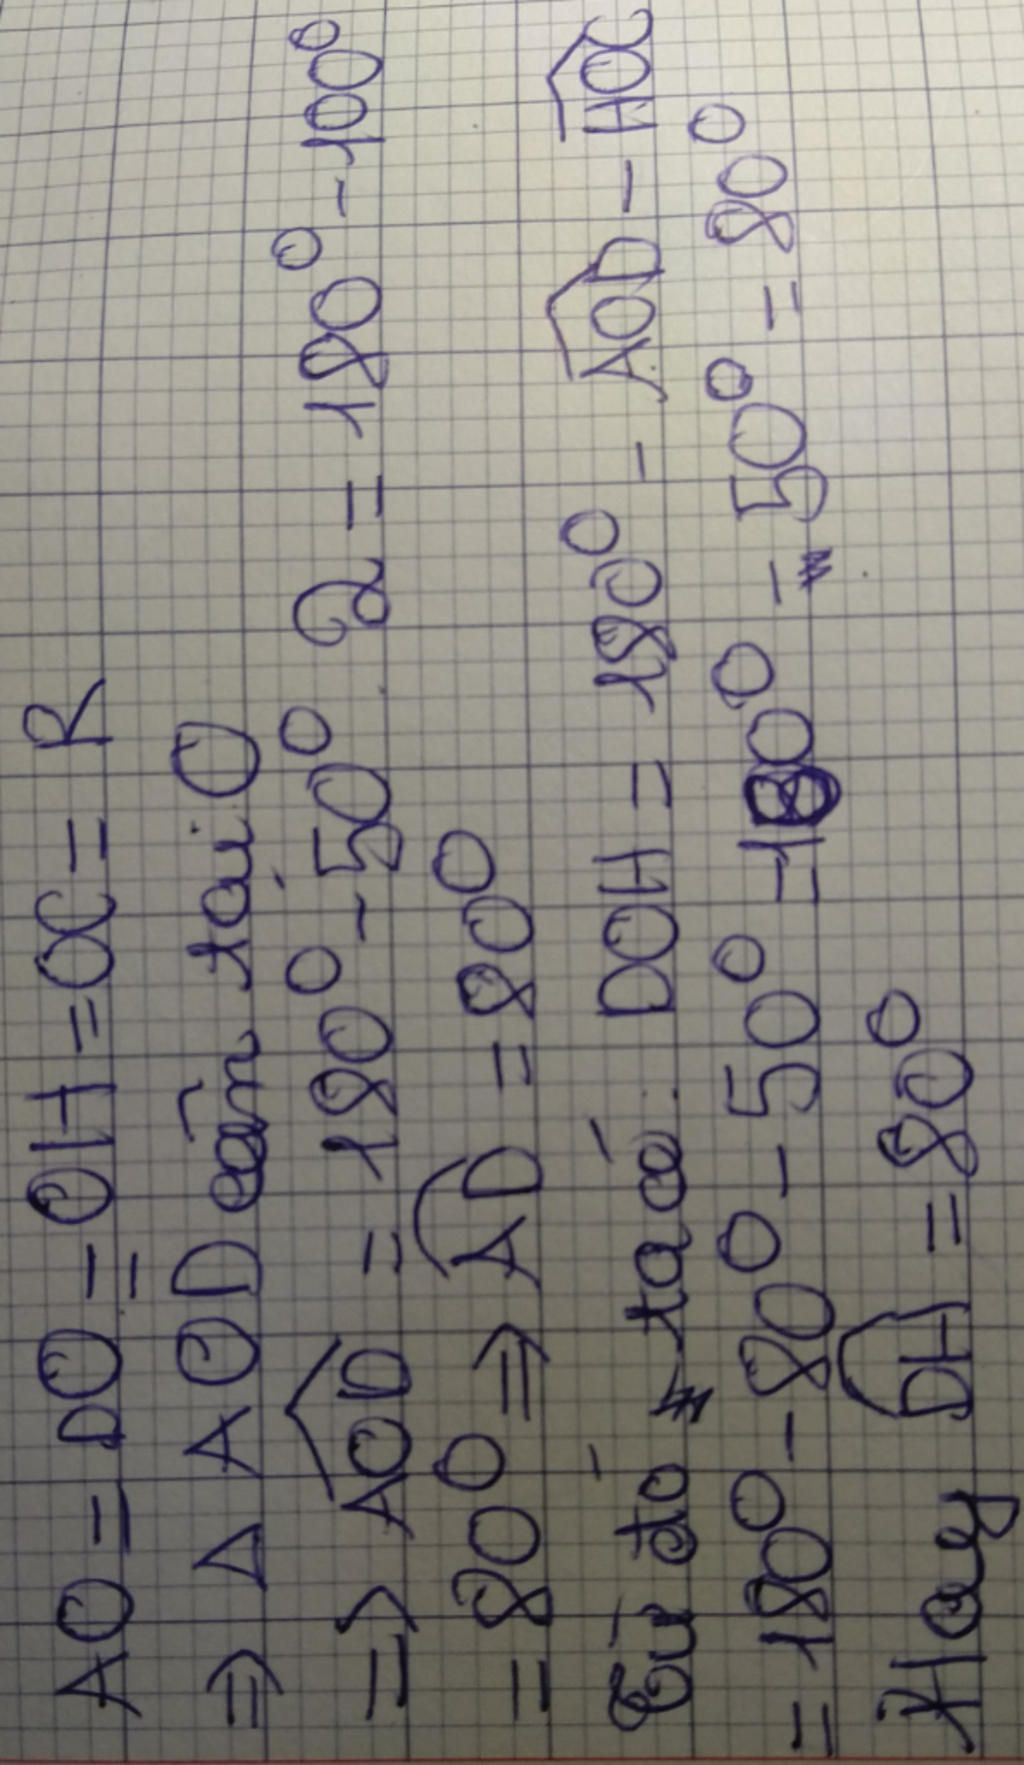 AO = DO = OH = OC = R
⇒ Δ AOD cân tại O
⇒ AOD = 180° - 50°. 2 = 180° - 100°
= 80° ⇒ AD = 80°
Từ đó ta có: DOH = 180° - AOD - HOC
= 180° - 80° - 50° = 180° - 50° = 80°
Hay DH = 80°